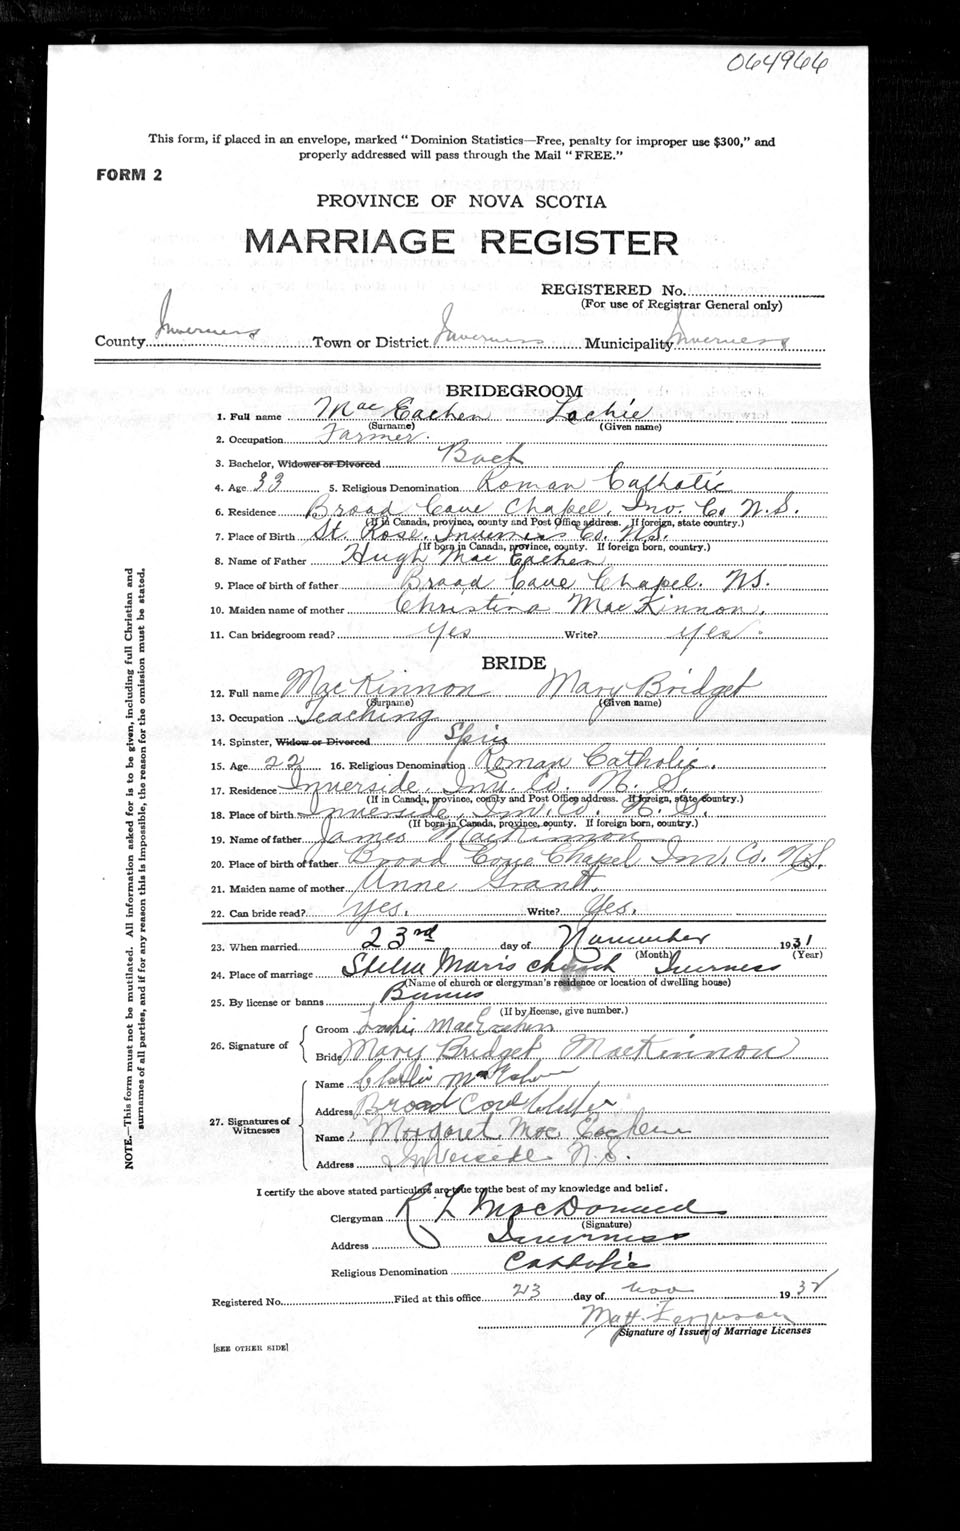 064966
This form, if placed in an envelope, marked "Dominion Statistics—Free, penalty for improper use $300," and
properly addressed will pass through the Mail "FREE."
FORM 2
PROVINCE OF NOVA SCOTIA
MARRIAGE REGISTER
REGISTERED No.
(For use of Registrar General only)
County Inverness Town or District Inverness Municipality Inverness
BRIDEGROOM
1. Full name MacEachen Lachie
(Surname) (Given name)
2. Occupation Farmer.
3. Bachelor, Widower or Divorced Bach
4. Age 33 5. Religious Denomination Roman Catholic
6. Residence Broad Cove Chapel, Inv. Co N.S.
(If in Canada, province, county and Post Office address. If foreign, state country.)
7. Place of Birth St. Rose. Inverness Co. N.S.
(If born in Canada, province, county. If foreign born, country.)
8. Name of Father Hugh MacEachen
9. Place of birth of father Broad Cove Chapel. NS.
10. Maiden name of mother Christina MacKinnon.
11. Can bridegroom read? yes Write? yes.
BRIDE
12. Full name MacKinnon Mary Bridget
(Surname) (Given name)
13. Occupation Teaching
14. Spinster, Widow or Divorced Spin
15. Age 22 16. Religious Denomination Roman Catholic.
17. Residence Inverside, Inv. Co. N. S.
(If in Canada, province, county and Post Office address. If foreign, state country.)
18. Place of birth Inverside, Inv. Co. N. S.
(If born in Canada, province, county. If foreign born, country.)
19. Name of father James MacKinnon
20. Place of birth of father Broad Cove Chapel Inv. Co. N.S.
21. Maiden name of mother Anne Grant.
22. Can bride read? yes. Write? Yes.
23. When married 23rd day of November 1931
(Month) (Year)
24. Place of marriage Stella Maris church Inverness
(Name of church or clergyman's residence or location of dwelling house)
25. By license or banns Banns
(If by license, give number.)
26. Signature of
Groom Lachie MacEachern
Bride Mary Bridget MacKinnon
27. Signatures of Witnesses
Name Charlie
Address Broad Cove
Name Margaret MacEachen
Address Inverside N.S.
I certify the above stated particulars are true to the best of my knowledge and belief.
Clergyman R L MacDonald
(Signature)
Address Inverness
Religious Denomination Catholic
Registered No. Filed at this office 23 day of Nov 1932
Matt. Ferguson
Signature of Issuer of Marriage Licenses
[SEE OTHER SIDE]
NOTE.—This form must not be mutilated. All information asked for is to be given, including full Christian and
surnames of all parties, and if for any reason this is impossible, the reason for the omission must be stated.